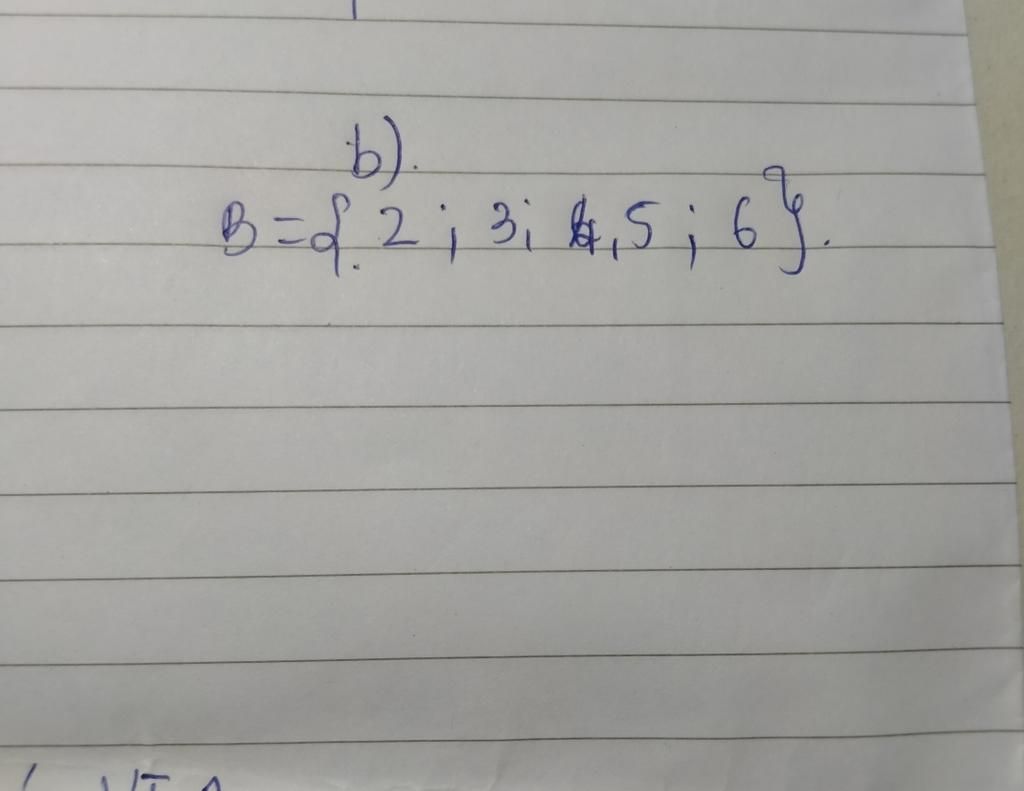 b).
B = { 2 ; 3; 4,5 ; 6 }.